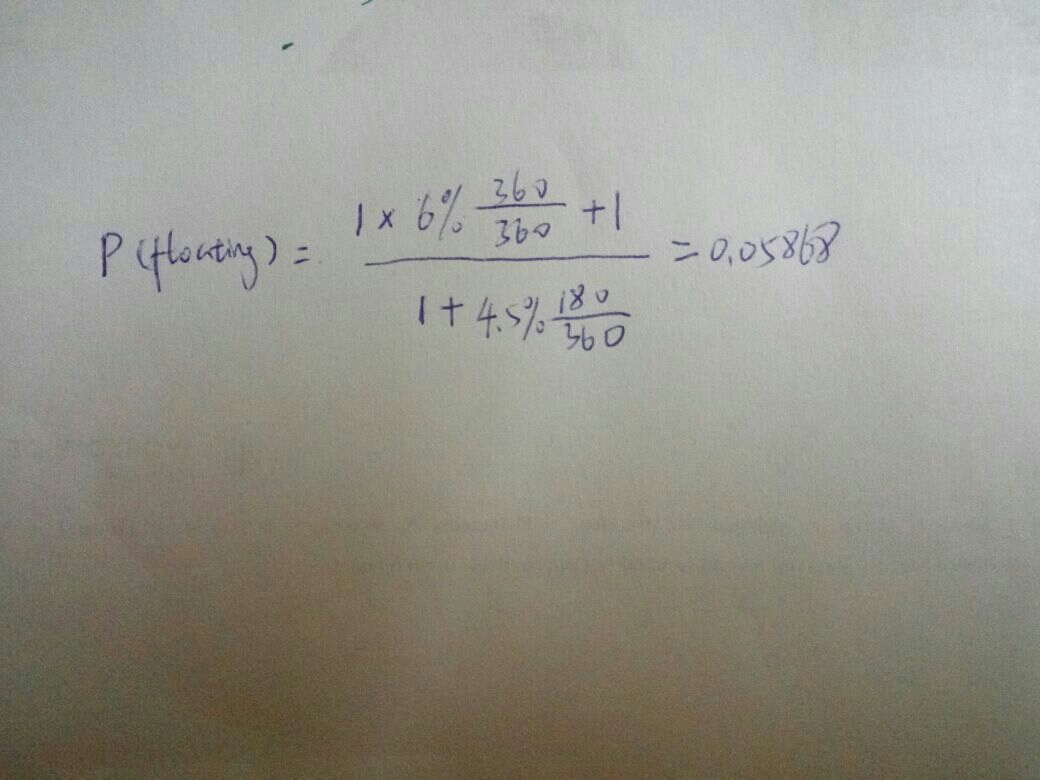 P(floating) = (1 × 6% 360/360 + 1) / (1 + 4.5% 180/360) = 0.05868